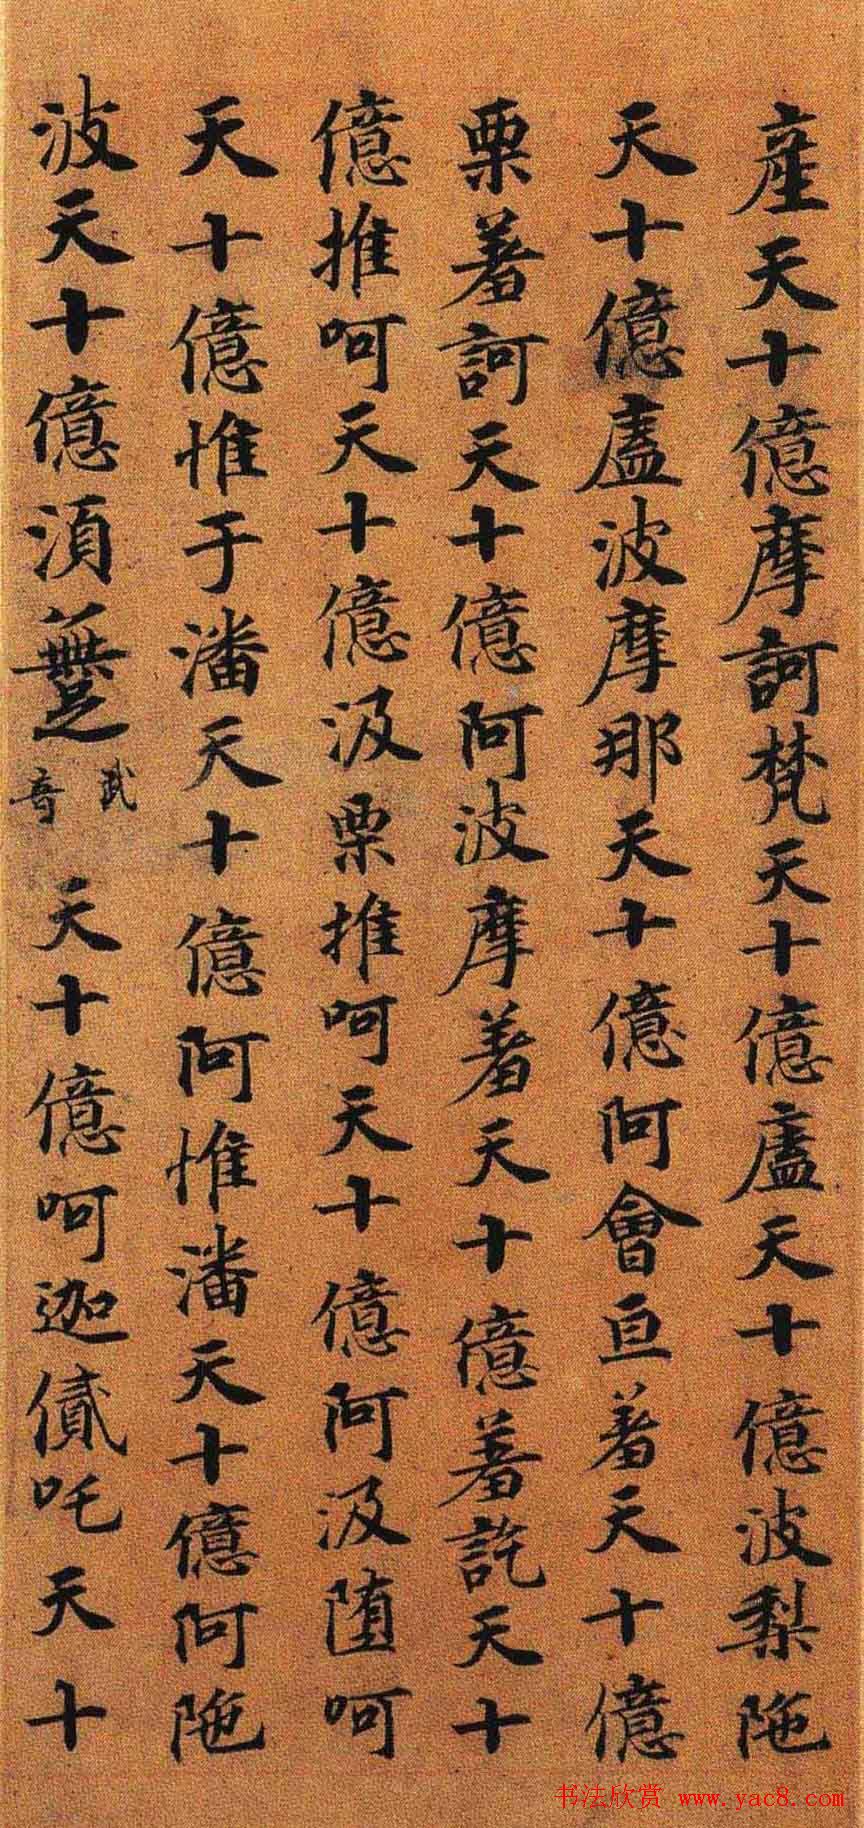 産天十億摩訶梵天十億廬天十億波梨陁
天十億廬波摩那天十億阿會亘著天十億
栗著訶天十億阿波摩著天十億著訖天十
億推呵天十億汲栗推呵天十億阿汲墮呵
天十億惟于潘天十億阿惟潘天十億阿陁
波天十億湏武音天十億呵迦貳吒天十
书法欣赏 www.yac8.com